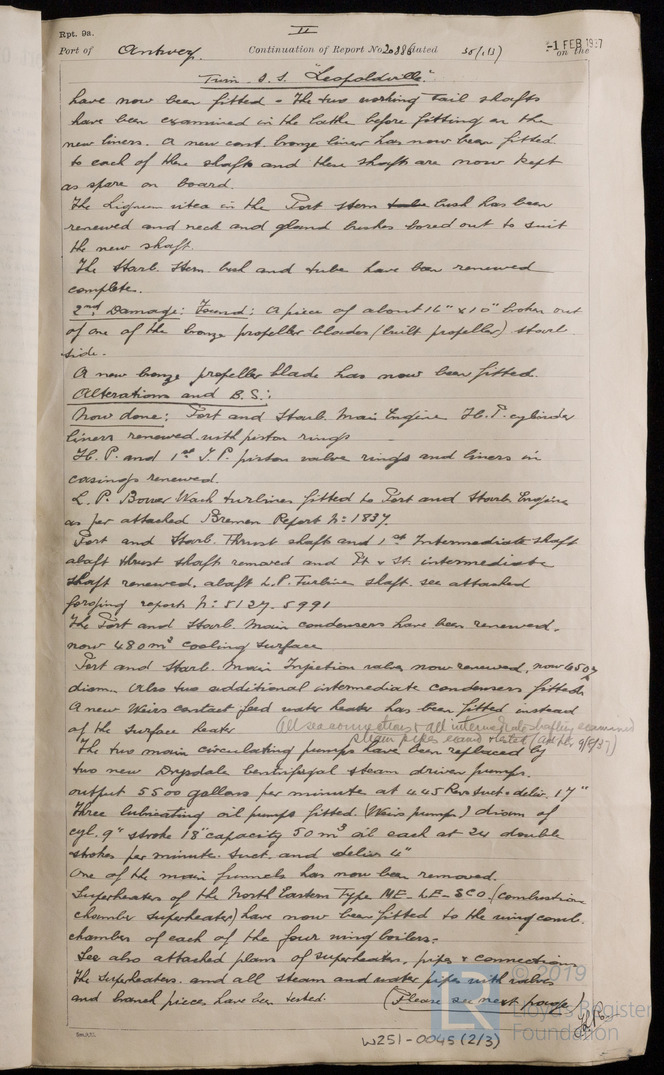 Rpt. 9a.
II
Port of Antwerp. Continuation of Report No. 20886 dated on the
-1 FEB 1937
Twin. S.S. "Leopoldville".
have now been fitted - The two working tail shafts
have been examined in the lathe before fitting on the
new liners. A new cast bronze liner has now been fitted
to each of these shafts and these shafts are now kept
as spare on board.
The Lignum vitea in the Port stern tube bush has been
renewed and neck and gland bushes bored out to suit
the new shaft.
The Starb. Stern bush and tube have been renewed
complete.
2nd Damage: Found: A piece of about 16" x 10" broken out
of one of the bronze propeller blades (built propeller) starb.
side.
A new bronze propeller blade has now been fitted.
Alterations and B.S.:
Now done: Port and Starb. Main Engine H.P. cylinder
liners renewed with piston rings
H.P. and 1st I.P. piston valve rings and liners in
casings renewed.
L.P. Bauer Wach turbines fitted to Port and Starb. Engine
as per attached Bremen Report No: 1837.
Port and Starb. Thrust shaft and 1st Intermediate shaft
abaft thrust shaft removed and Pt & St. intermediate
shaft renewed, abaft L.P. Turbine shaft. see attached
forging report No: 5127. 5991
The Port and Starb. Main condensers have been renewed.
now 480 m² cooling surface
Port and Starb. Main Injection valve now renewed, now
diam. Also two additional intermediate condensers fitted.
A new Weirs contact feed water heater has been fitted instead
of the surface heater
All sea connections & all intermediate shafting examined
steam pipes exam & tested 9/8/37)
The two main circulating pumps have been replaced by
two new Drysdale centrifugal steam driven pumps.
output 5500 gallons per minute at 445 Rev. suct & deliv. 17"
Three lubricating oil pumps fitted. (Weirs pumps) diam of
cyl. 9" stroke 18" capacity 50 m³ oil each at 24 double
strokes per minute. Suct. and deliv 4"
One of the main funnels has now been removed.
Superheaters of the North Eastern Type ME-LE-SCO (combustion
chamber superheater) have now been fitted to the wing comb.
chambers of each of the four wing boilers.
See also attached plans of superheaters, pipes & connections
The superheaters. and all steam and water pipes with valves
and branch pieces have been tested. (Please see next page)
W251-0045 (2/3)
LR
© 2019
Lloyd's Register
Foundation